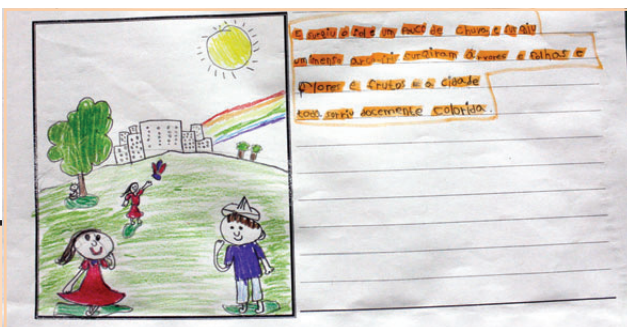 e surgiu o sol e um pouco de chuva e surgiu
um imenso arco-iris surgiram arvores e folhas e
flores e frutos e a cidade
toda sorriu docemente colorida.